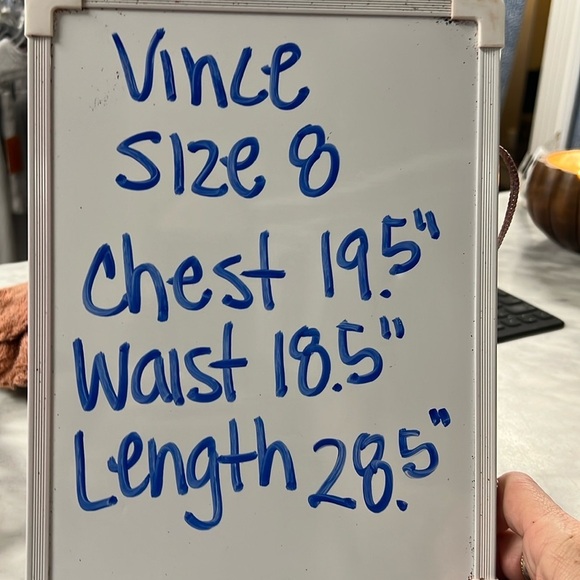 Vince
Size 8
Chest 19.5"
Waist 18.5"
Length 28.5"